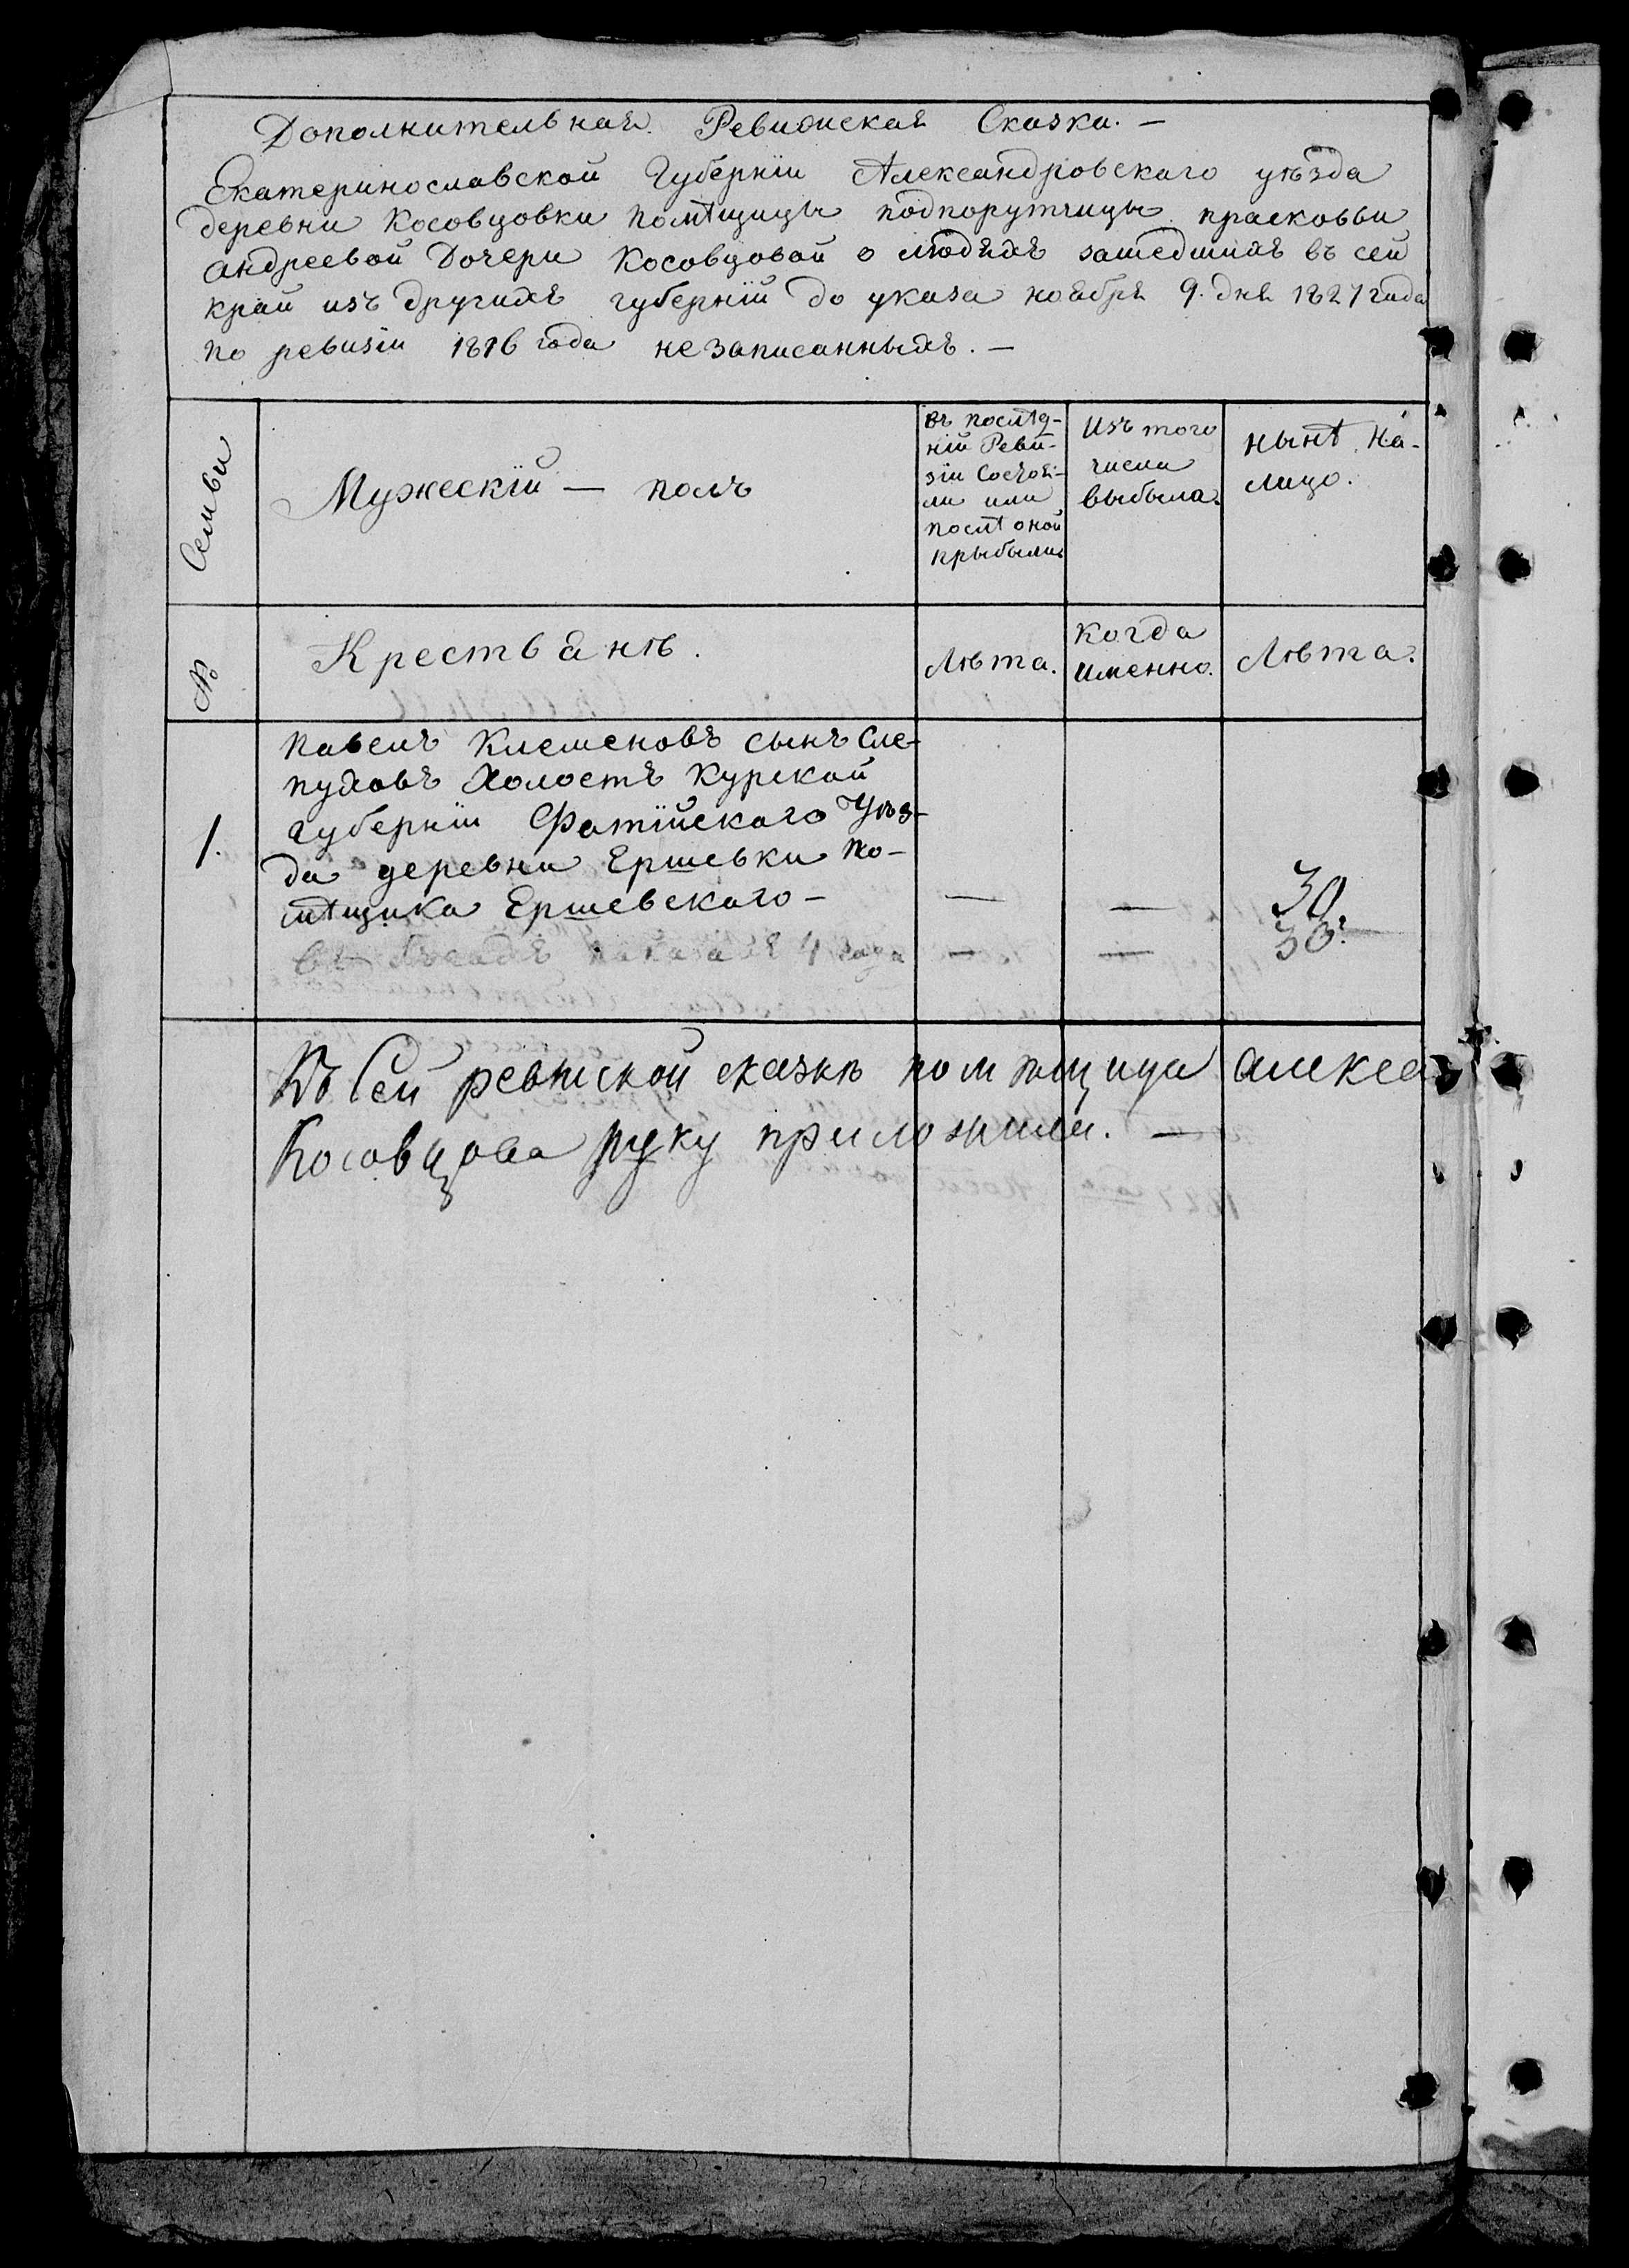 Дополнительная Ревизская Сказка. —
Екатеринославской Губернїи Александровскаго уѣзда
деревни Косовцовки помѣщицы подпорутчицы прасковьи
андреевой Дочери Косовцовой о людяхъ зашедшихъ въ сей
край изъ другихъ губернїй до указа ноября 9. дня 1827 года
по ревизїи 1816 года незаписанныхъ. —
Семьи
Мужескїй — полъ
въ послѣд-
нїй Реви-
зїи Состоя-
ли или
послѣ оной
прыбыли
Изъ того
числа
выбыла.
нынѣ На-
лицо.
№
Крестьянѣ.
Лѣта.
когда
именно.
Лѣта.
1.
павелъ Клеменовъ сынъ Сле-
пухов​ъ Холостъ Курской
губернїи Фатїйскаго Уѣз-
да деревни Ершевки По-
мѣщика Ершевскаго —
— — 30.
4 года — — 30.
Къ Сей ревиской сказкѣ помѣщица алексе
Косовцова руку приложила. —